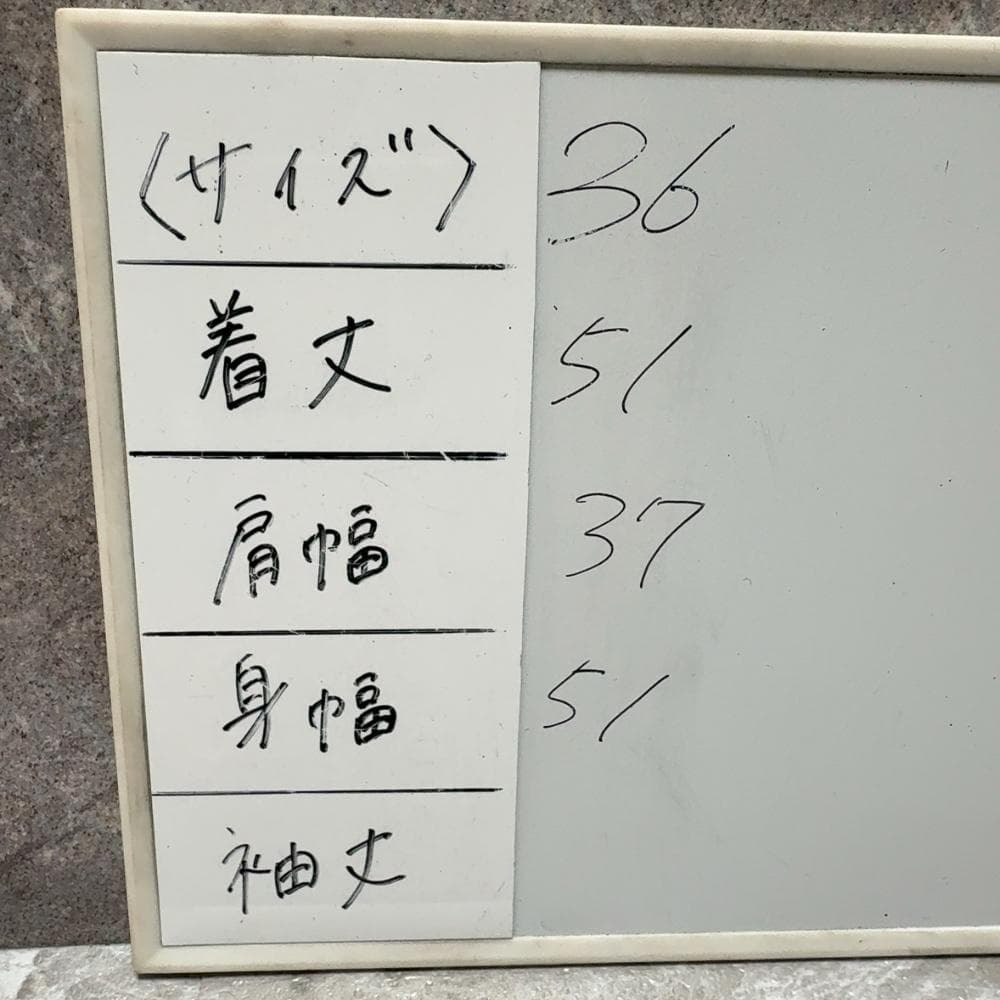 〈サイズ〉 36
着丈 51
肩幅 37
身幅 51
袖丈